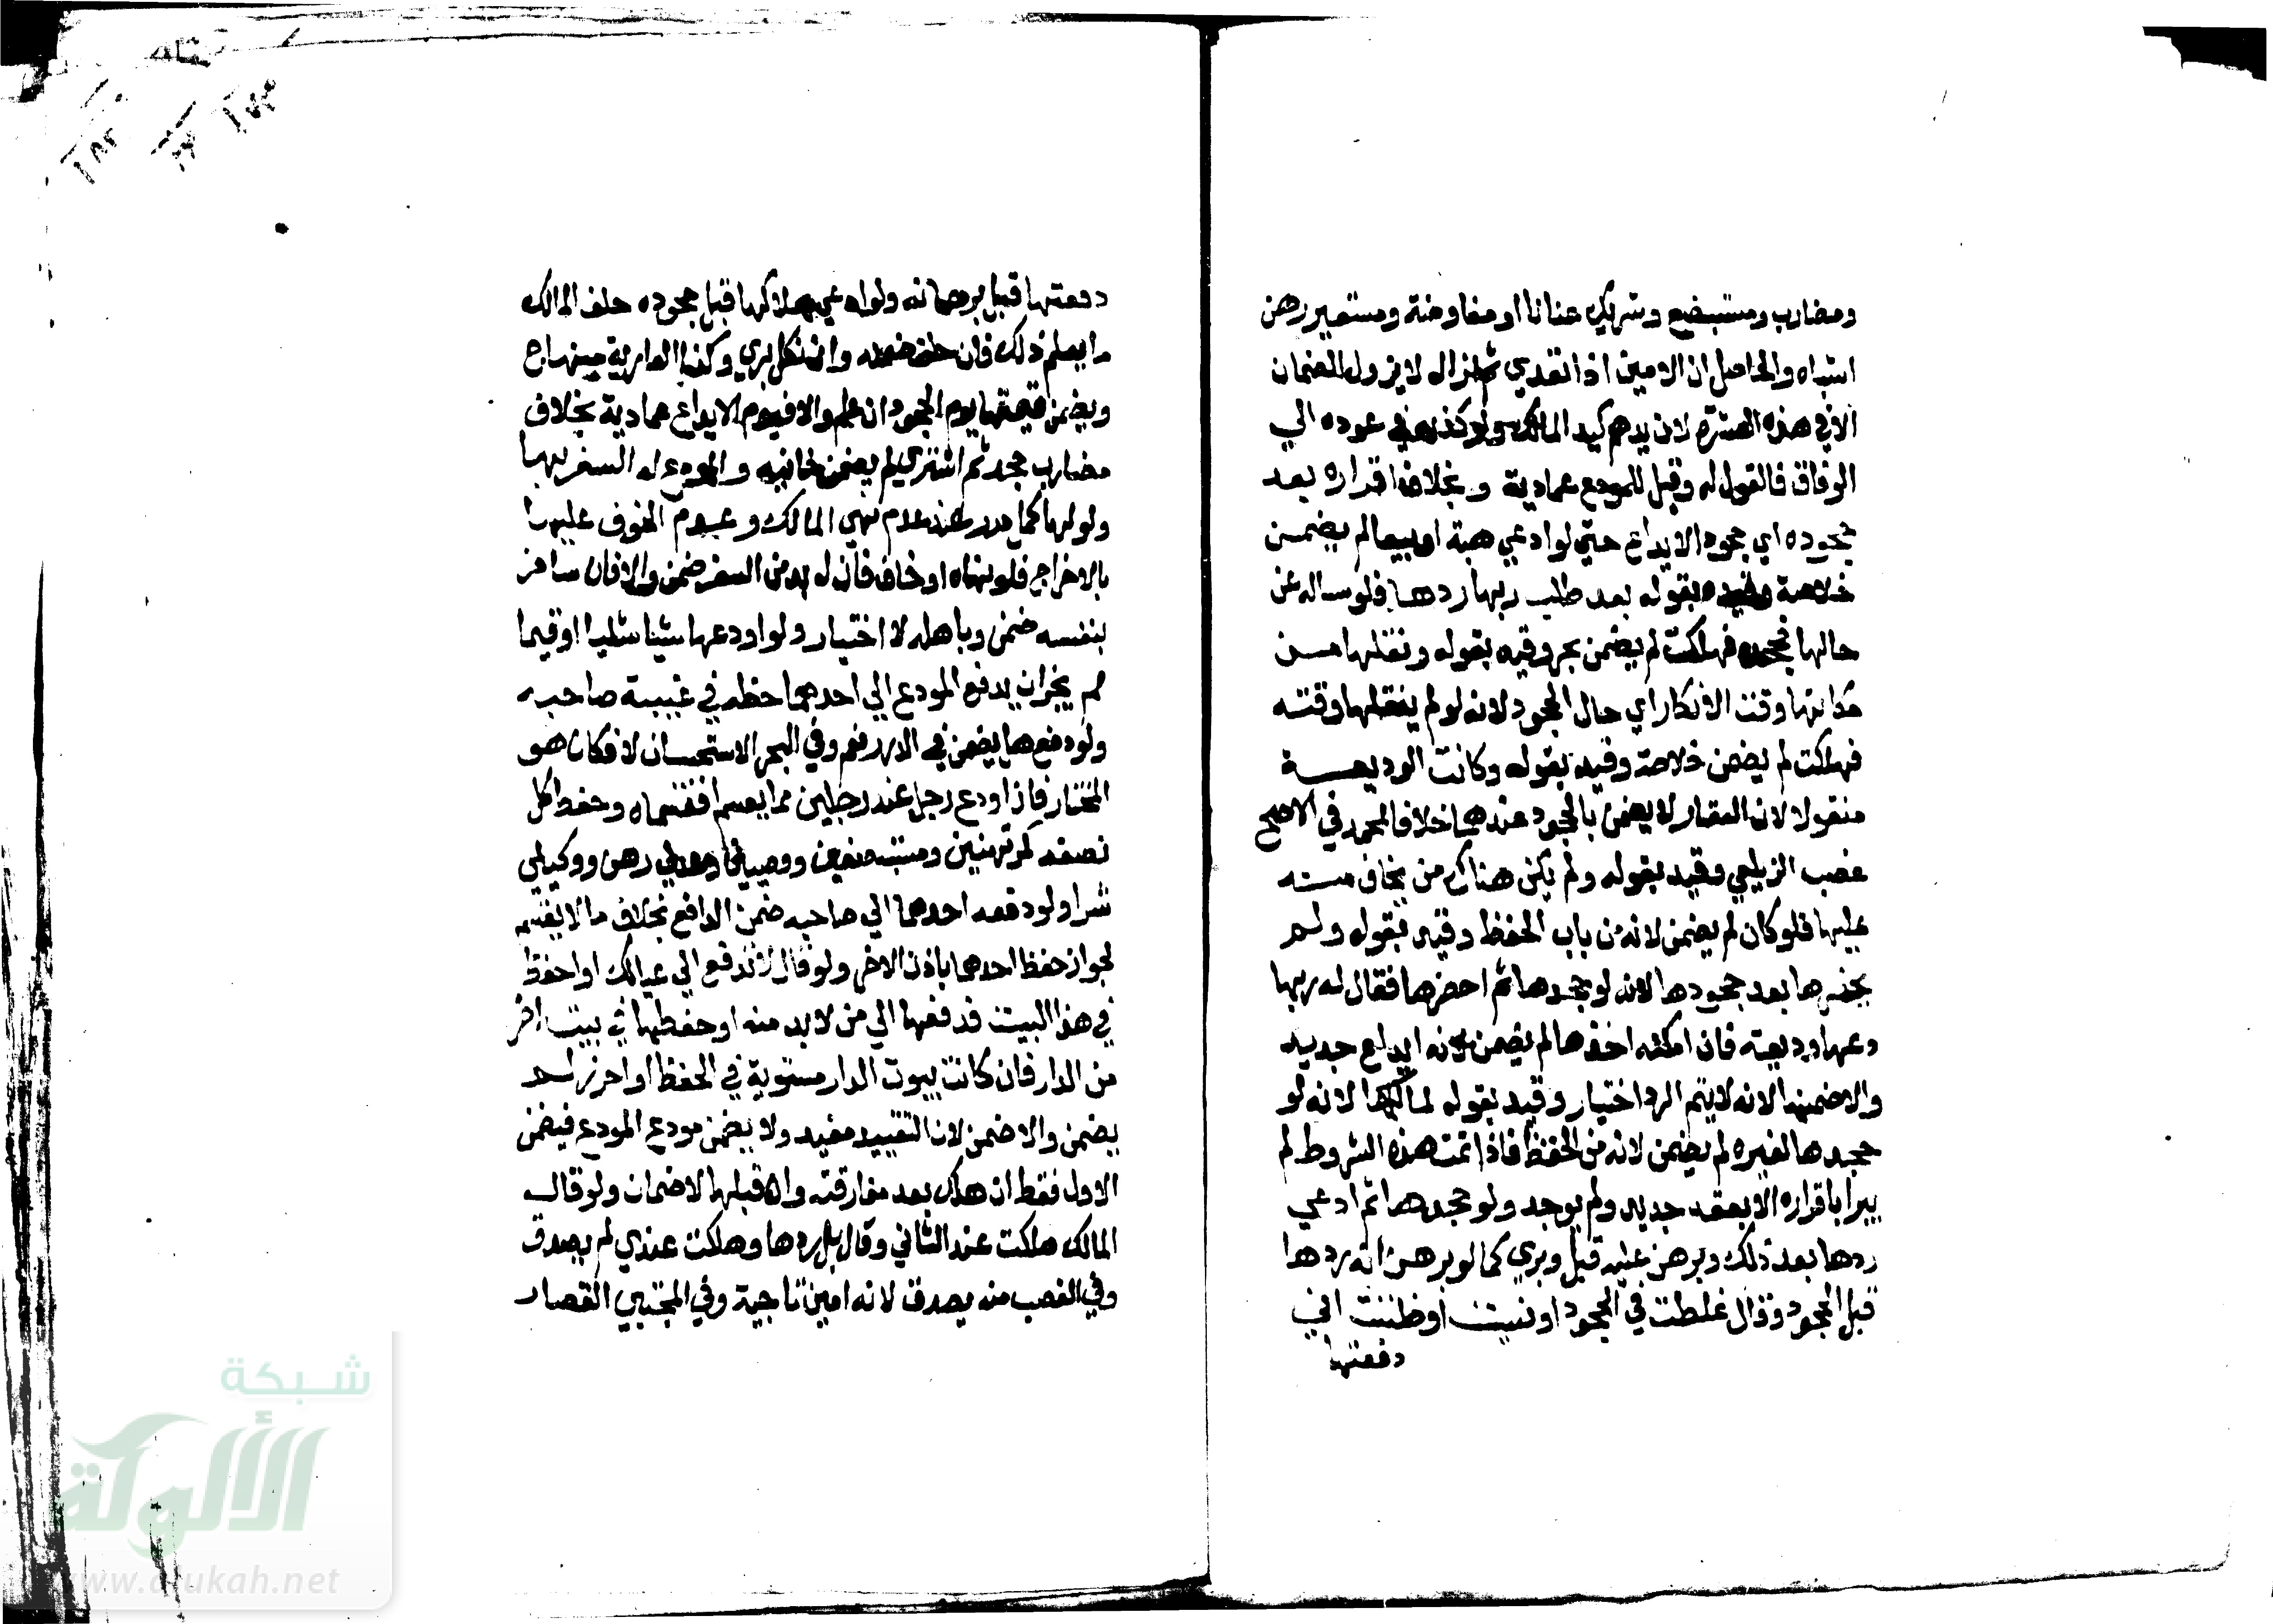 ومضارب ومستبضع وشريك عنانا او مفاوضة ومستعير رهن
اشباه والحاصل ان الامين اذا تعدي ثم ازال لا يزول الضمان
الا في هذه العشرة لان يدهم كيد المالك ولو كذبه في عوده الي
الوفاق فالقول له وقيل للمودع عمادية وبخلاف اقراره بعد
جحوده اي جحود الايداع حتي لو ادعي هبة او بيعا لم يضمن
خلاصة وقيده بقوله بعد طلب ربها ردها فلو ساله عن
حالها فجحده فهلكت لم يضمن بحر وقيد بقوله ونقلها من
مكانها وقت الانكار اي حال الجحود لانه لو لم ينقلها وقته
فهلكت لم يضمن خلاصة وقيد بقوله وكانت الوديعة
منقولا لان العقار لا يضمن بالجحود عندهما خلافا لمحمد في الاصح
غصب الزيلعي وقيد بقوله ولم يكن هناك من يخاف منه
عليها فلو كان لم يضمن لانه من باب الحفظ وقيد بقوله ولم
يحضرها بعد جحودها لانه لو جحدها ثم احضرها فقال له ربها
دعها وديعة فان امكنه اخذها لم يضمن لانه ايداع جديد
والا ضمنها لانه لا يتم الرد اختيار وقيد بقوله لمالكها لانه لو
جحدها لغيره لم يضمن لانه من الحفظ فاذا تمت هذه الشروط لم
يبرا باقراره الا بعقد جديد ولم يوجد ولو جحدها ثم ادعي
ردها بعد ذلك وبرهن عليه قبل وبري كما لو برهن انه ردها
قبل الجحود وقال غلطت في الجحود او نسيت او ظننت اني
دفعتها
دفعتها قبل برهانه ولو ادعي هلاكها قبل جحوده حلف المالك
ما يعلم ذلك فان حلف ضمنه وان نكل بري وكذا العارية منهاج
ويضمن قيمتها يوم الجحود ان علم والا فيوم الايداع عمادية بخلاف
مضارب جحد ثم اشتري لم يضمن خانية والمودع له السفر بها
ولو لها حمل درر عند عدم نهي المالك وعدم الخوف عليها
بالاخراج فلو نهاه او خاف فان له بد من السفر ضمن والا فان سافر
بنفسه ضمن وباهله لا اختيار ولو اودعها شيئا مثليا او قيميا
لم يجز ان يدفع المودع الي احدهما حظه في غيبة صاحبه
ولو دفع هل يضمن في الدرر نعم وفي البحر الاستحسان لا فكان هو
المختار فان اودع رجل عند رجلين مما يقسم اقتسماه وحفظ كل
نصفه كمرتهنين ومستبضعين ووصيين وعدلي رهن ووكيلي
شرا ولو دفعه احدهما الي صاحبه ضمن الدافع بخلاف ما لا يقسم
لجواز حفظ احدهما باذن الاخر ولو قال لا تدفع الي عيالك او احفظ
في هذا البيت فدفعها الي من لا بد منه او حفظها في بيت اخر
من الدار فان كانت بيوت الدار مستوية في الحفظ او احرز لم
يضمن والا ضمن لان التقييد مفيد ولا يضمن مودع المودع فيضمن
الاول فقط ان هلك بعد مفارقته وان قبلها لا ضمان ولو قال
المالك هلكت عند الثاني وقال بل ردها وهلكت عندي لم يصدق
وفي الغصب منه يصدق لانه امين تاجية وفي المجتبي القصار